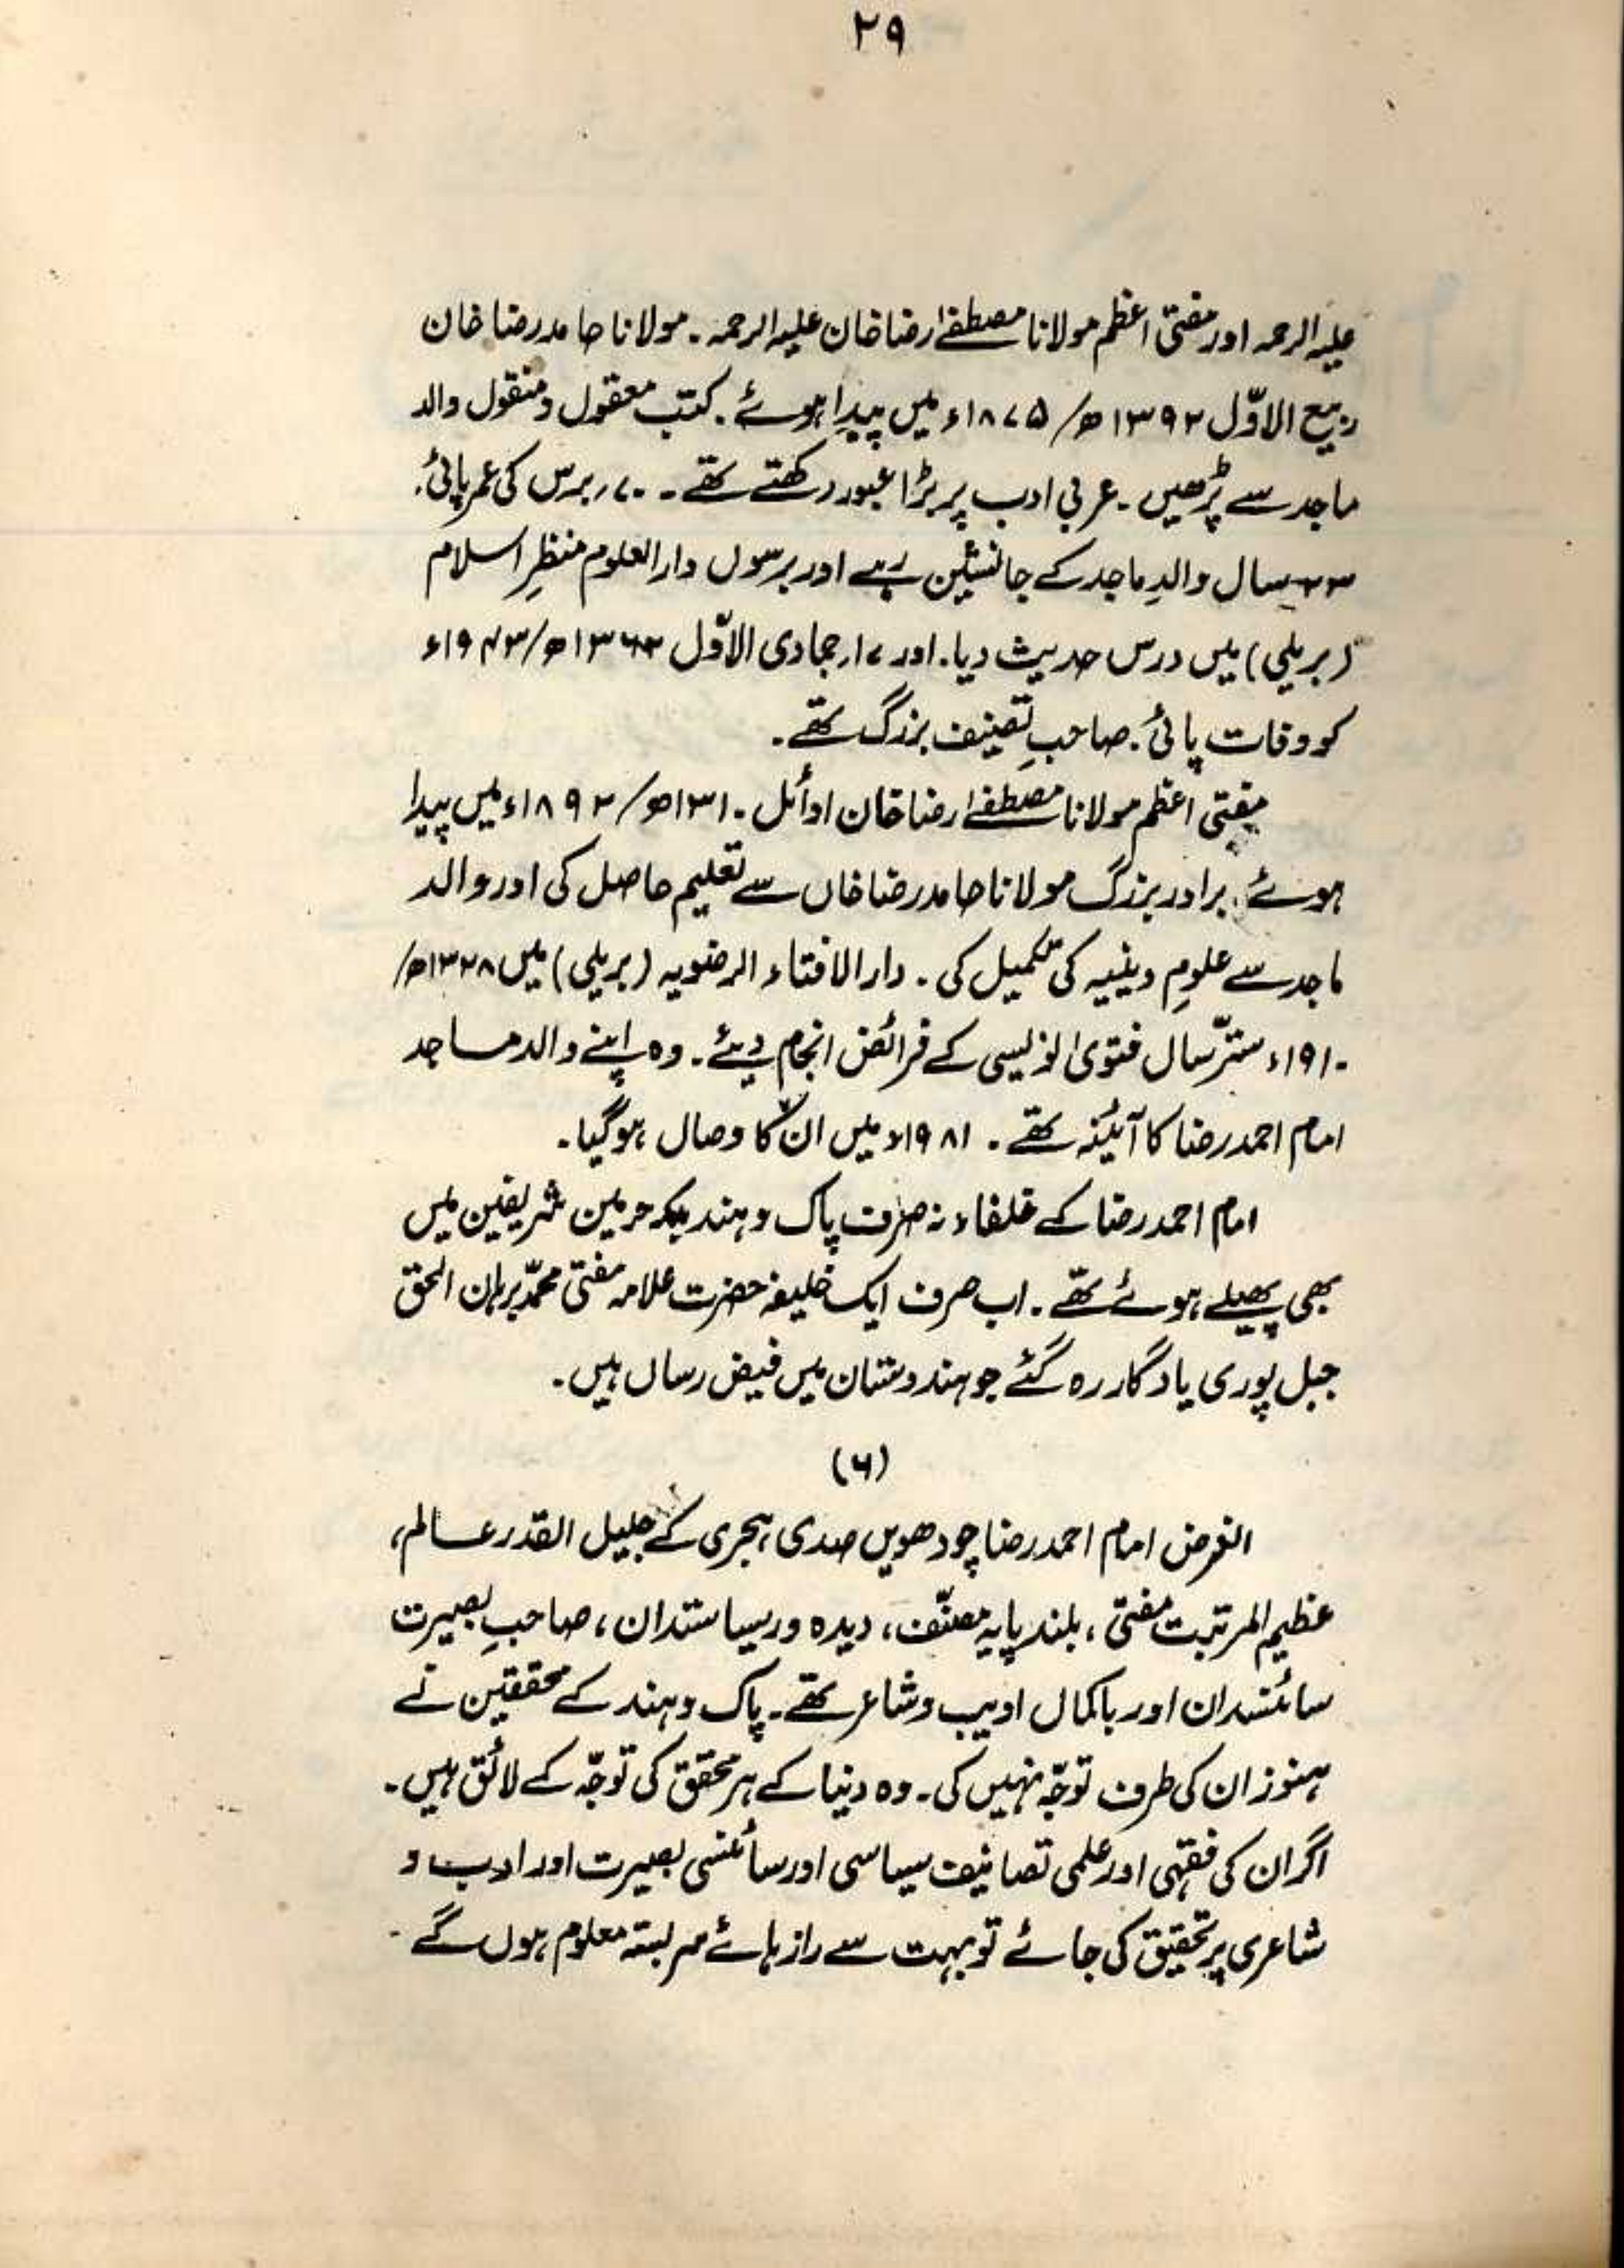 ۲۹
علیہ الرحمہ اور مفتی اعظم مولانا مصطفےٰ رضا خان علیہ الرحمہ۔ مولانا حامد رضا خان
ربیع الاوّل ۱۳۹۲ھ/۱۸۷۵ء میں پیدا ہوئے۔ کتب معقول و منقول والد
ماجد سے پڑھیں۔ عربی ادب پر بڑا عبور رکھتے تھے۔ ۷۰ برس کی عمر پائی۔
۲۳ سال والدِ ماجد کے جانشین رہے اور برسوں دارالعلوم منظرِ اسلام
(بریلی) میں درس حدیث دیا۔ اور ۱۷ر جمادی الاوّل ۱۳۶۲ھ/۱۹۴۳ء
کو وفات پائی۔ صاحبِ تصنیف بزرگ تھے۔
مفتی اعظم مولانا مصطفےٰ رضا خان اوائل ۱۳۱۰ھ/۱۸۹۲ء میں پیدا
ہوئے۔ برادر بزرگ مولانا حامد رضا خاں سے تعلیم حاصل کی اور والد
ماجد سے علومِ دینیہ کی تکمیل کی۔ دارالافتاء الرضویہ (بریلی) میں ۱۳۲۸ھ/
۱۹۱۰ء ستّر سال فتویٰ نویسی کے فرائض انجام دیئے۔ وہ اپنے والد ماجد
امام احمد رضا کا آئینہ تھے۔ ۱۹۸۱ء میں ان کا وصال ہوگیا۔
امام احمد رضا کے خلفاء نہ صرف پاک و ہند بلکہ حرمین شریفین میں
بھی پھیلے ہوئے تھے۔ اب صرف ایک خلیفہ حضرت علامہ مفتی محمّد برہان الحق
جبل پوری یادگار رہ گئے جو ہندوستان میں فیض رساں ہیں۔
(۶)
الغرض امام احمد رضا چودھویں صدی ہجری کے جلیل القدر عالم،
عظیم المرتبت مفتی، بلند پایہ مصنّف، دیدہ ور سیاستدان، صاحبِ بصیرت
سائنسدان اور باکمال ادیب و شاعر تھے۔ پاک و ہند کے محققین نے
ہنوز ان کی طرف توجّہ نہیں کی۔ وہ دنیا کے ہر محقق کی توجّہ کے لائق ہیں۔
اگر ان کی فقہی اور علمی تصانیف سیاسی اور سائنسی بصیرت اور ادب و
شاعری پر تحقیق کی جائے تو بہت سے راز ہائے سربستہ معلوم ہوں گے۔